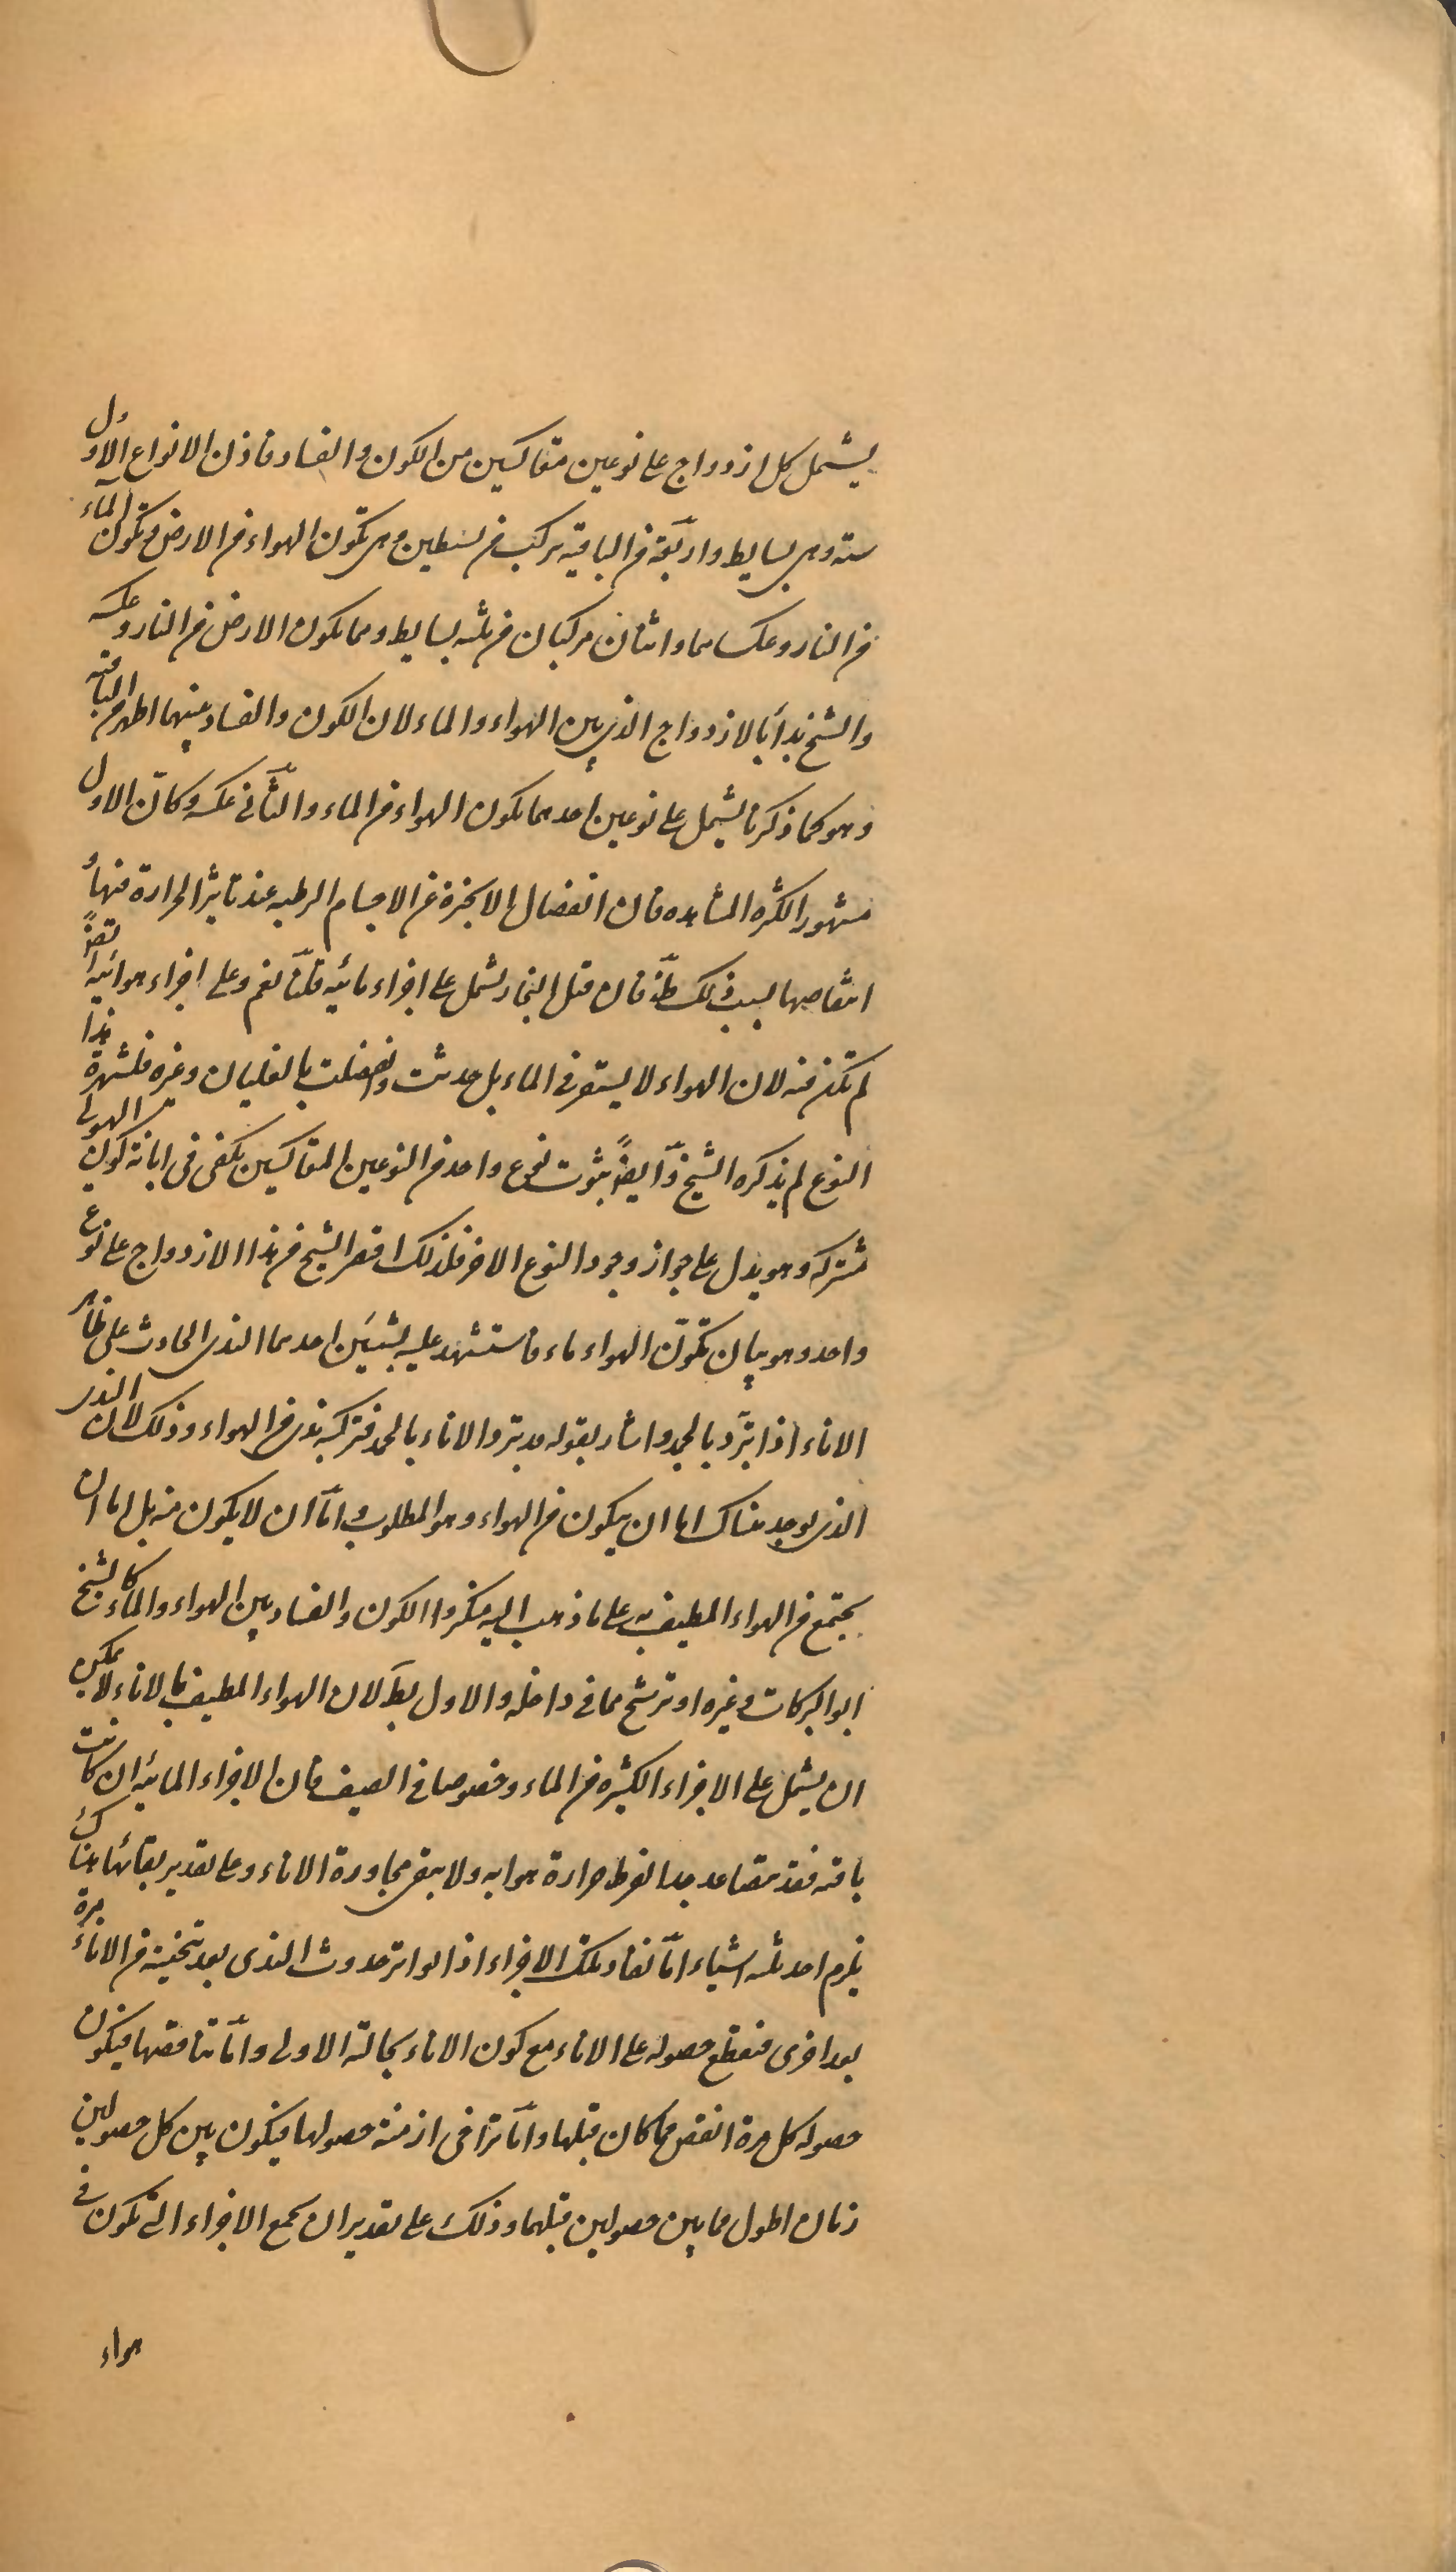 يشتمل كل ازدواج على نوعين متعاكسين من الكون والفساد فاذن الانواع الاول
ستة وهى بسايط واربعة من الباقية مركب من بسيطين وهى تكون الهواء من الارض وتكون الماء
من النار وعكساهما واثنان مركبان من ثلثه بسايط وهما تكون الارض من النار وعكسه
والشيخ بدأ بالازدواج الذى بين الهواء والماء لان الكون والفساد بينهما اظهر من الباقية
وهو كما ذكرنا يشتمل على نوعين احدهما تكون الهواء من الماء والثانى عكسه وكان الاول
مشهور الكثرة المشاهده فان انفصال الابخرة عن الاجسام الرطبه عند تاثير الحرارة فيها
انتقاصها بسبب ذلك ظ فان قيل البخار يشتمل على اجزاء مائيه قلنا نعم وعلى اجزاء هوائية ايضً
لم تكن منه لان الهواء لا يستقر فى الماء بل حدثت وانفصلت بالغليان وغيره فلشهرة هذا
النوع لم يذكره الشيخ وايضً ثبوت نوع واحد من النوعين المتعاكسين يكفى فى ابانة كون الهيولى
مشتركه وهو يدل على جواز وجود النوع الاخر فلذلك اقتصر الشيخ من هذا الازدواج على نوع
واحد وهو بيان تكون الهواء ماء فاستشهد عليه بشيئين احدهما الندى الحادث على ظاهر
الاناء اذا برد بالجمد واشار بقوله قد يبرد الاناء بالجمد فيركبه ندى من الهواء وذلك لان الندى
الذى يوجد هناك اما ان يتكون من الهواء وهو المطلوب واما ان لا يتكون منه بل اما ان
يجتمع من الهواء المطيف به على ما ذهب اليه منكروا الكون والفساد بين الهواء والماء كالشيخ
ابو البركات وغيره او ترشح مما فى داخله والاول بط لان الهواء المطيف بالاناء لا يمكن
ان يشتمل على الاجزاء الكثيره من الماء وخصوصا فى الصيف فان الاجزاء المائيه ان كانت
باقيه فقد تتصاعد جدا لفرط حرارة هوايه ولا يبقى مجاورة الاناء وعلى تقدير بقائها هناك
يلزم احد ثلثه اشياء اما نفاد تلك الاجزاء اذا تواتر حدوث الندى بعد تنحيته من الاناء مرة
بعد اخرى فينقطع حصوله على الاناء مع كون الاناء بحالته الاولى واما تناقصها فيكون
حصوله كل مرة انقص مما كان قبلها واما تراخى ازمنة حصولها فيكون بين كل حصولين
زمان اطول مما بين حصولين قبلهما وذلك على تقدير ان يجمع الاجزاء التى تكون فى
هواء